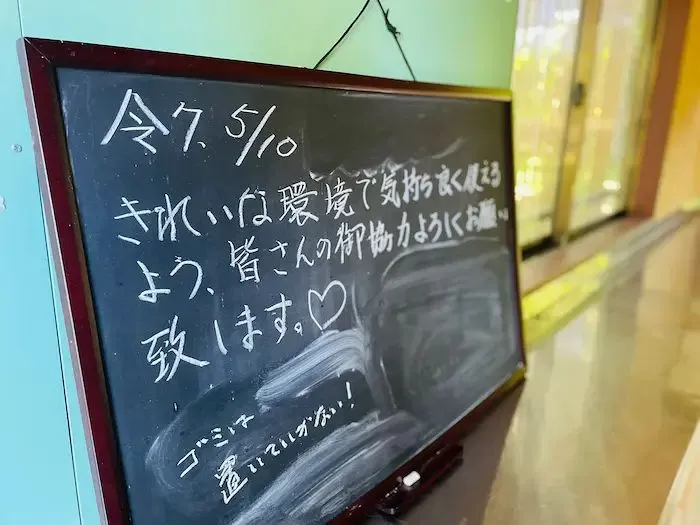 令7、5/10
きれいな環境で気持ち良く使える
よう、皆さんの御協力よろしくお願い
致します。♡
ゴミは
置いていかない!